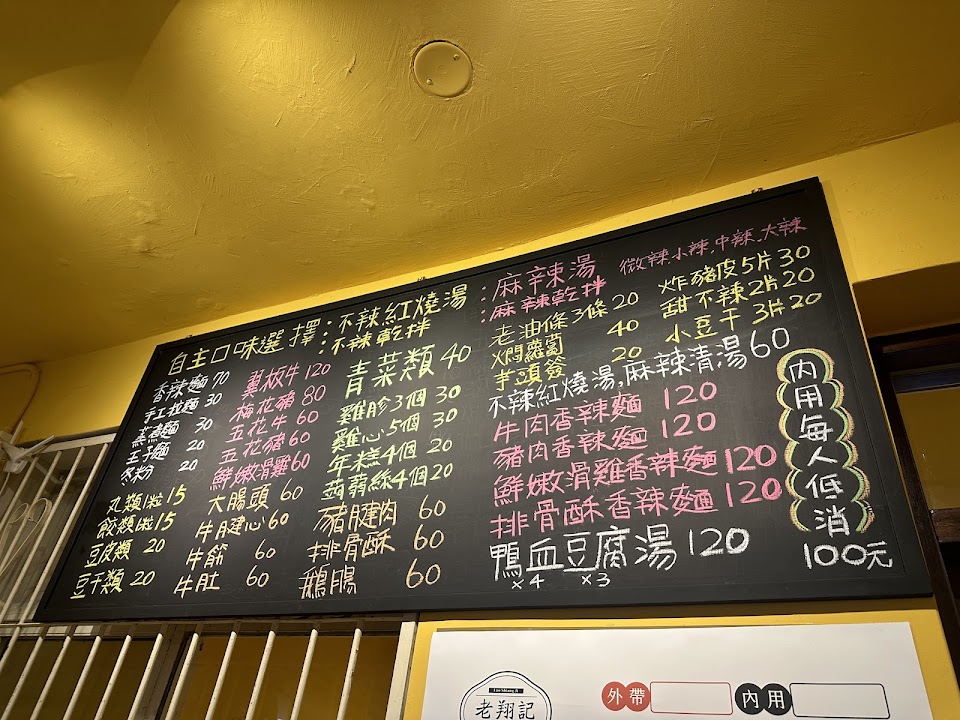 自主口味選擇:不辣紅燒湯:麻辣湯 微辣.小辣.中辣.大辣
:不辣乾拌:麻辣乾拌
香辣麵70
手工拉麵30
蒸煮麵30
王子麵20
冬粉20
丸類1粒15
餃類1粒15
豆皮類20
豆干類20
翼板牛120
梅花豬80
五花牛60
五花豬60
鮮嫩滑雞60
大腸頭60
牛腱心60
牛筋60
牛肚60
青菜類40
雞胗3個30
雞心5個30
年糕4個20
蒟蒻絲4個20
豬腱肉60
排骨酥60
鵝腸60
老油條3條20
焖蘿蔔40
芋頭簽20
炸豬皮5片30
甜不辣2片20
小豆干3片20
不辣紅燒湯,麻辣清湯60
牛肉香辣麵120
豬肉香辣麵120
鮮嫩滑雞香辣麵120
排骨酥香辣麵120
鴨血豆腐湯120
×4 ×3
內用每人低消
100元
老翔記
外帶
內用